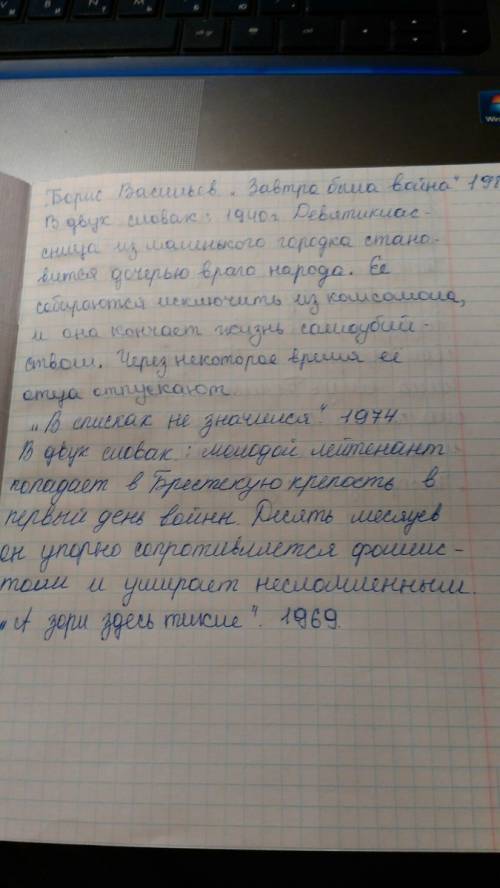 Борис Васильев „Завтра была война" 198
В двух словах: 1940г Девятиклас-
сница из маленького городка стано-
вится дочерью врага народа. Её
собираются исключить из комсомола,
и она кончает жизнь самоубий-
ством. Через некоторое время её
отца отпускают
„В списках не значился". 1974
В двух словах: молодой лейтенант
попадает в Брестскую крепость в
первый день войны. Десять месяцев
он упорно сопротивляется фашис-
там и умирает несломленным.
„А зори здесь тихие". 1969.